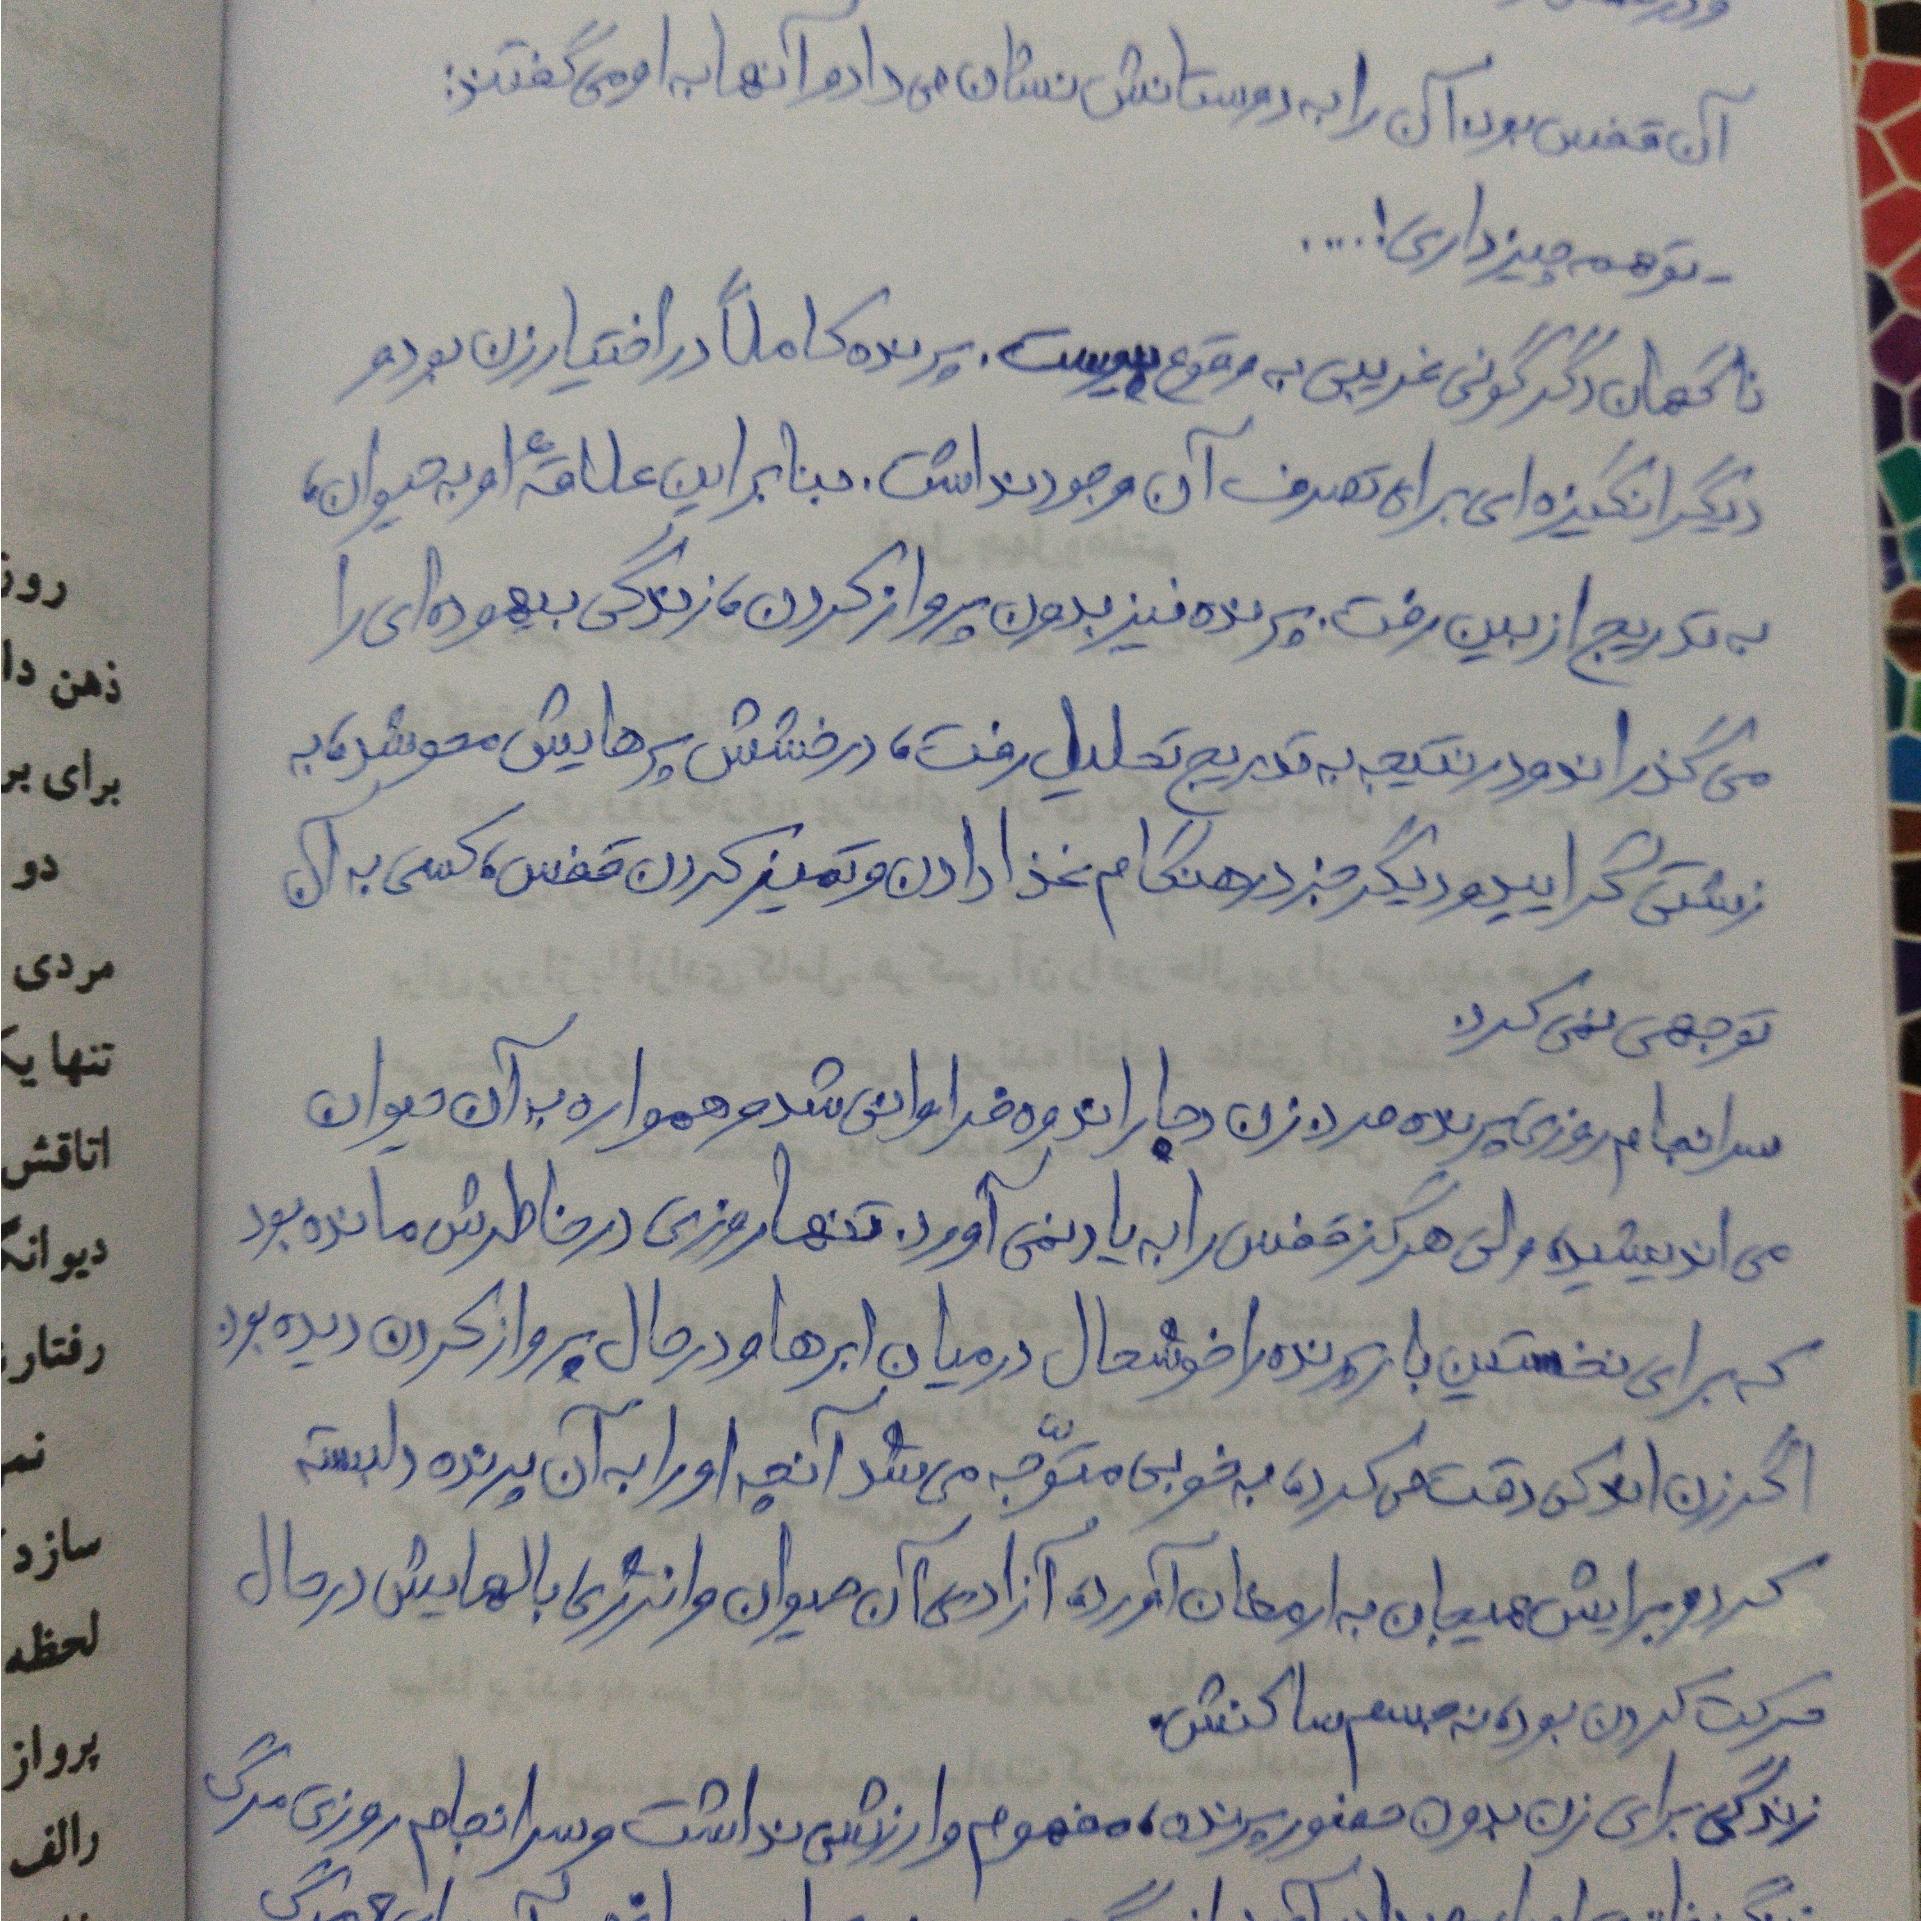 آن قفس بود، آن را به دوستانش نشان می داد و آنها به او می گفتند:
ـ تو همه چیز داری!....
ناگهان دگرگونی غریبی به وقوع پیوست. پرنده کاملاً در اختیار زن بود و
دیگر انگیزه ای برای تصرف آن وجود نداشت. بنابراین علاقهٔ او به حیوان،
به تدریج از بین رفت. پرنده نیز بدون پرواز کردن، زندگی بیهوده ای را
می گذراند و در نتیجه به تدریج تحلیل رفت، درخشش پرهایش محو شد، به
زشتی گرایید و دیگر جز در هنگام غذا دادن و تمیز کردن قفس، کسی به آن
توجهی نمی کرد.
سرانجام روزی پرنده مرد. زن دچار اندوه فراوانی شد و همواره به آن حیوان
می اندیشید، ولی هرگز قفس را به یاد نمی آورد. تنها روزی در خاطرش مانده بود
که برای نخستین بار پرنده را خوشحال در میان ابرها و در حال پرواز کردن دیده بود.
اگر زن اندکی دقت می کرد، به خوبی متوّجه می شد آنچه او را به آن پرنده دلبسته
کرد و برایش هیجان به ارمغان آورد، آزادی آن حیوان و انرژی بالهایش در حال
حرکت کردن بود، نه جسم ساکنش.
زندگی برای زن بدون حضور پرنده، مفهوم و ارزشی نداشت و سرانجام روزی مرگ
روز
ذهن دا
برای بر
دو
مردی
تنها یک
اتاقش
دیوانگ
رفتار
نم
سازد
لحظه
پرواز
رالف